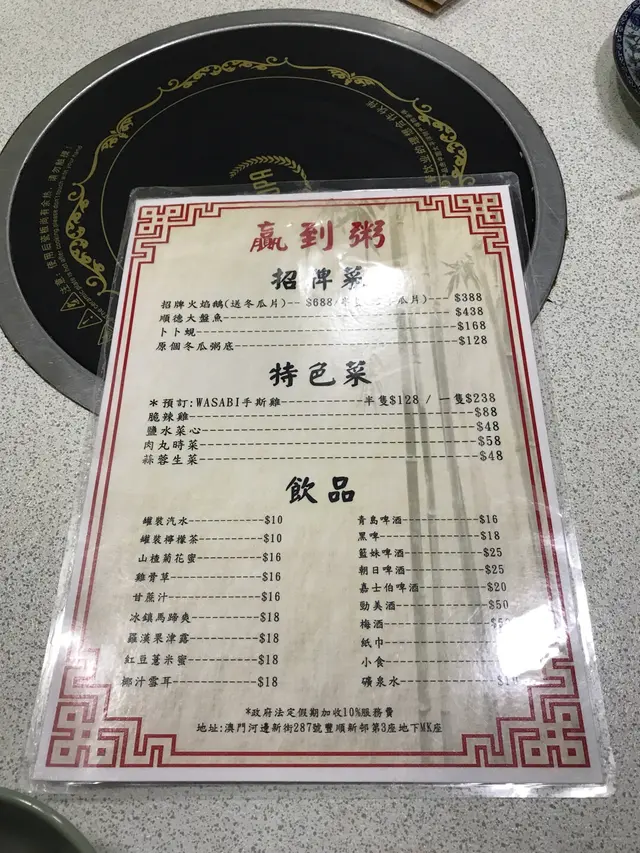 贏到粥
招牌菜
招牌火焰鵝(送冬瓜片)-- $688/ 瓜片)---- $388
順德大盤魚 $438
卜卜蜆 $168
原個冬瓜粥底 $128
特色菜
*預訂:WASABI手撕雞 半隻$128 / 一隻$238
脆辣雞 $88
鹽水菜心 $48
肉丸時菜 $58
蒜蓉生菜 $48
飲品
罐裝汽水 $10
罐裝檸檬茶 $10
山楂菊花蜜 $16
雞骨草 $16
甘蔗汁 $16
冰鎮馬蹄爽 $18
羅漢果津露 $18
紅豆薏米蜜 $18
椰汁雪耳 $18
青島啤酒 $16
黑啤 $18
藍妹啤酒 $25
朝日啤酒 $25
嘉士伯啤酒 $20
勁美酒 $50
梅酒
紙巾
小食
礦泉水
*政府法定假期加收10%服務費
地址:澳門河邊新街287號豐順新邨第3座地下MK座